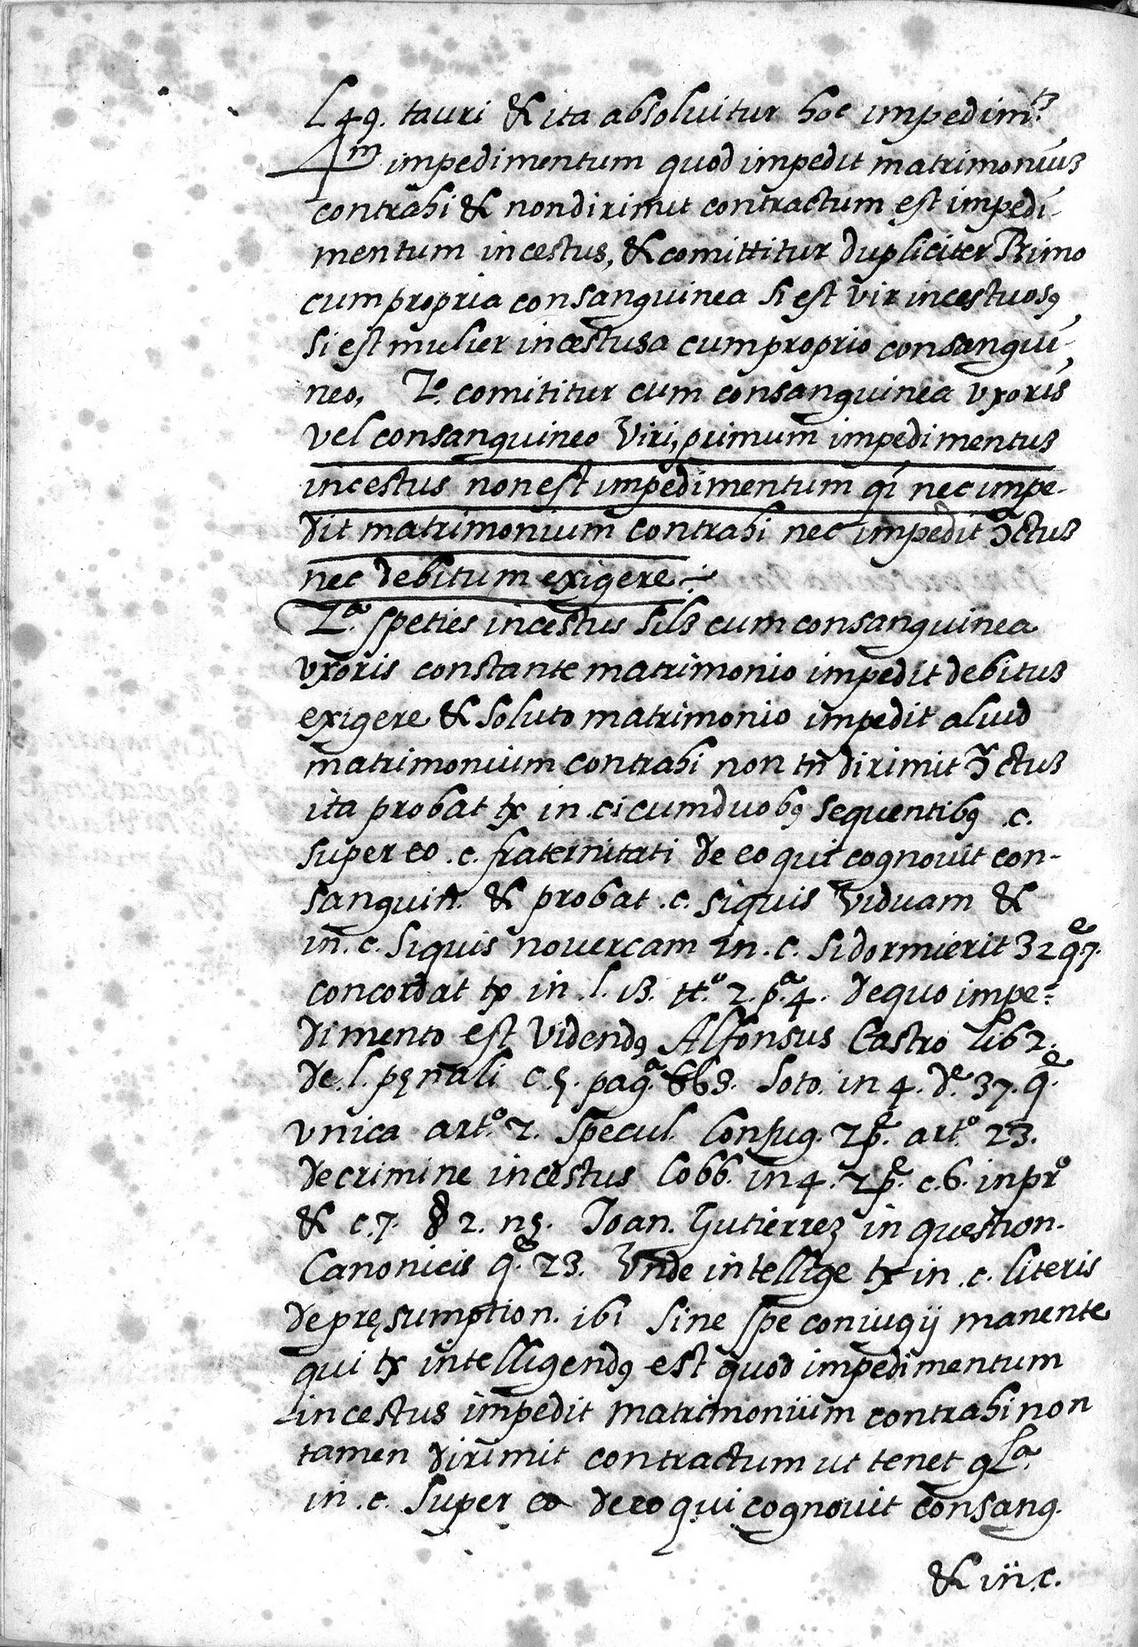 L 49. tauri & ita absoluitur hoc impedimto.
4m impedimentum quod impedit matrimoniuȝ
contrahi & non dirimit contractum est impedi-
mentum incestus, & comittitur dupliciter Primo
cum propria consanguinea si est vir incestuosꝯ
si est mulier incestusa cum proprio consangui-
neo, 2o. comititur cum consanguinea vxoris
vel consanguineo viri, primum impedimentuȝ
incestus non est impedimentum qi nec impe-
dit matrimonium contrahi nec impedit ɔ̃ctuȝ
nec debitum exigere
2a. speties incestus silȝ cum consanguinea
vxoris constante matrimonio impedit debituȝ
exigere & soluto matrimonio impedit aliud
matrimonium contrahi non tñ dirimit ɔ̃ctuȝ
ita probat tx in .c. i cum duobꝯ sequentibꝯ .c.
super eo .c. fraternitati de eo qui cognouit con-
sanguiñ. & probat .c. siquis viduam &
in .c. siquis nouercam in .c. si dormierit 32 qe 7.
concordat tx in .l. 13. tto. 2. pa. 4. de quo impe-
dimento est videndꝯ Alfonsus Castro lib 2.
de .l. pęnali c. 5. paga 663. Soto. in 4. de. 37. qe.
vnica arto. 2. specul. Coniug. 2 pe. arto. 23.
de crimine incestus Cobb. in 4. 2 pe. c. 6. in pro
& c. 7. § 2. n 5. Ioan. Gutierrez in question.
Canonicis qe. 23. Vnde intellige tx in .c. literis
de pręsumption. ibi sine spe coniugij manente
qui tx intelligendꝯ est quod impedimentum
incestus impedit matrimonium contrahi non
tamen dirimit contractum ut tenet gla.
in .c. super eo de eo qui cognouit consang.
& in .c.